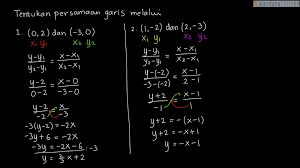 Tentukan persamaan garis melalui
1. (0,2) dan (-3,0)
x₁ y₁ x₂ y₂
y-y₁ / y₂-y₁ = x-x₁ / x₂-x₁
y-2 / 0-2 = x-0 / -3-0
y-2 / -2 = x / -3
-3(y-2) = -2x
-3y+6 = -2x
-3y = -2x-6 :-3
y = 2/3 x + 2
2. (1,-2) dan (2,-3)
x₁ y₁ x₂ y₂
y-y₁ / y₂-y₁ = x-x₁ / x₂-x₁
y-(-2) / -3-(-2) = x-1 / 2-1
y+2 / -1 = x-1 / 1
y+2 = -(x-1)
y+2 = -x+1
y = -x-1